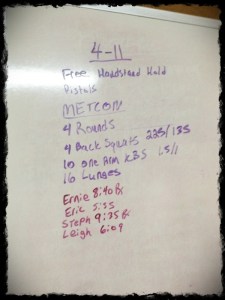 4-11
Free Handstand Hold
Pistols
METCON
4 Rounds
4 Back Squats 225/135
10 One Arm KBS
16 Lunges
Ernie 8:40 Rx
Eric 5:55
Steph 9:35
Leigh 6:09